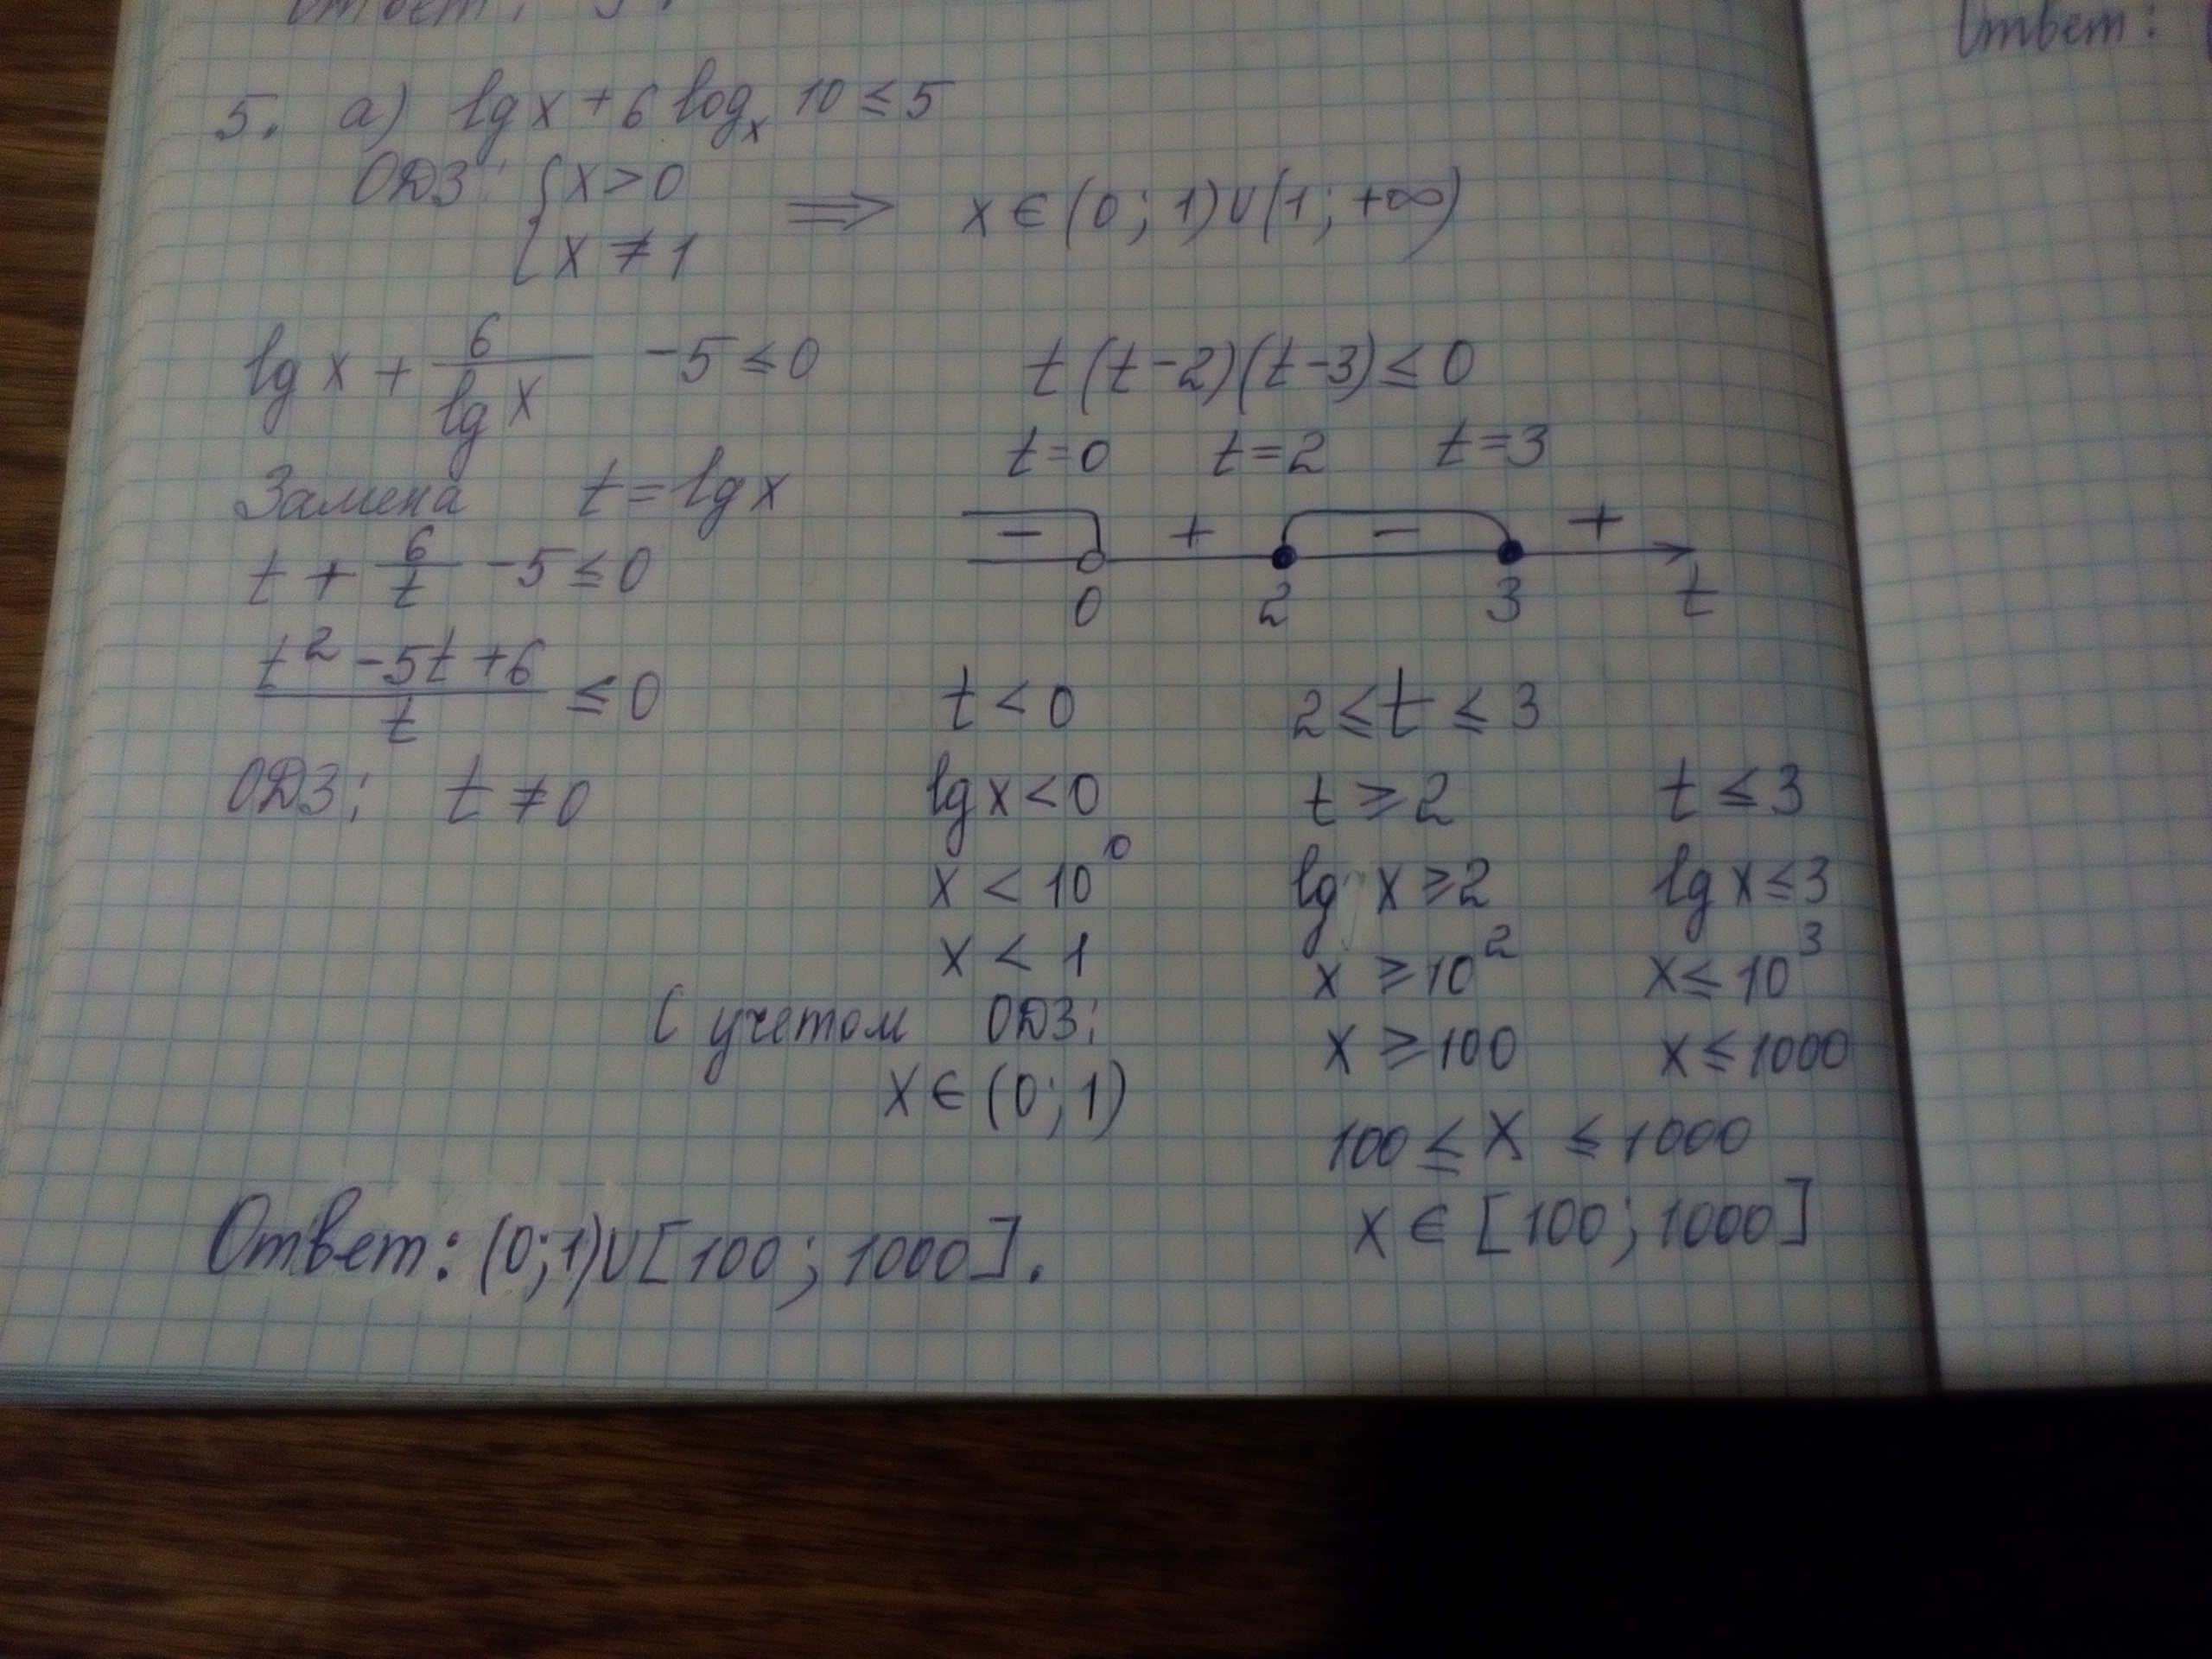 Ответ:
5. а) lg x + 6 log_x 10 ≤ 5
ОДЗ: { x > 0
{ x ≠ 1
⟹ x ∈ (0; 1) ∪ (1; +∞)
lg x + 6/lg x - 5 ≤ 0
Замена t = lg x
t + 6/t - 5 ≤ 0
(t² - 5t + 6)/t ≤ 0
ОДЗ: t ≠ 0
t (t - 2)(t - 3) ≤ 0
t = 0 t = 2 t = 3
− + − +
0 2 3 t
t < 0
lg x < 0
x < 10⁰
x < 1
С учетом ОДЗ:
x ∈ (0; 1)
2 ≤ t ≤ 3
t ≥ 2 t ≤ 3
lg x ≥ 2 lg x ≤ 3
x ≥ 10² x ≤ 10³
x ≥ 100 x ≤ 1000
100 ≤ x ≤ 1000
x ∈ [100; 1000]
Ответ: (0; 1) ∪ [100; 1000].
Ответ: